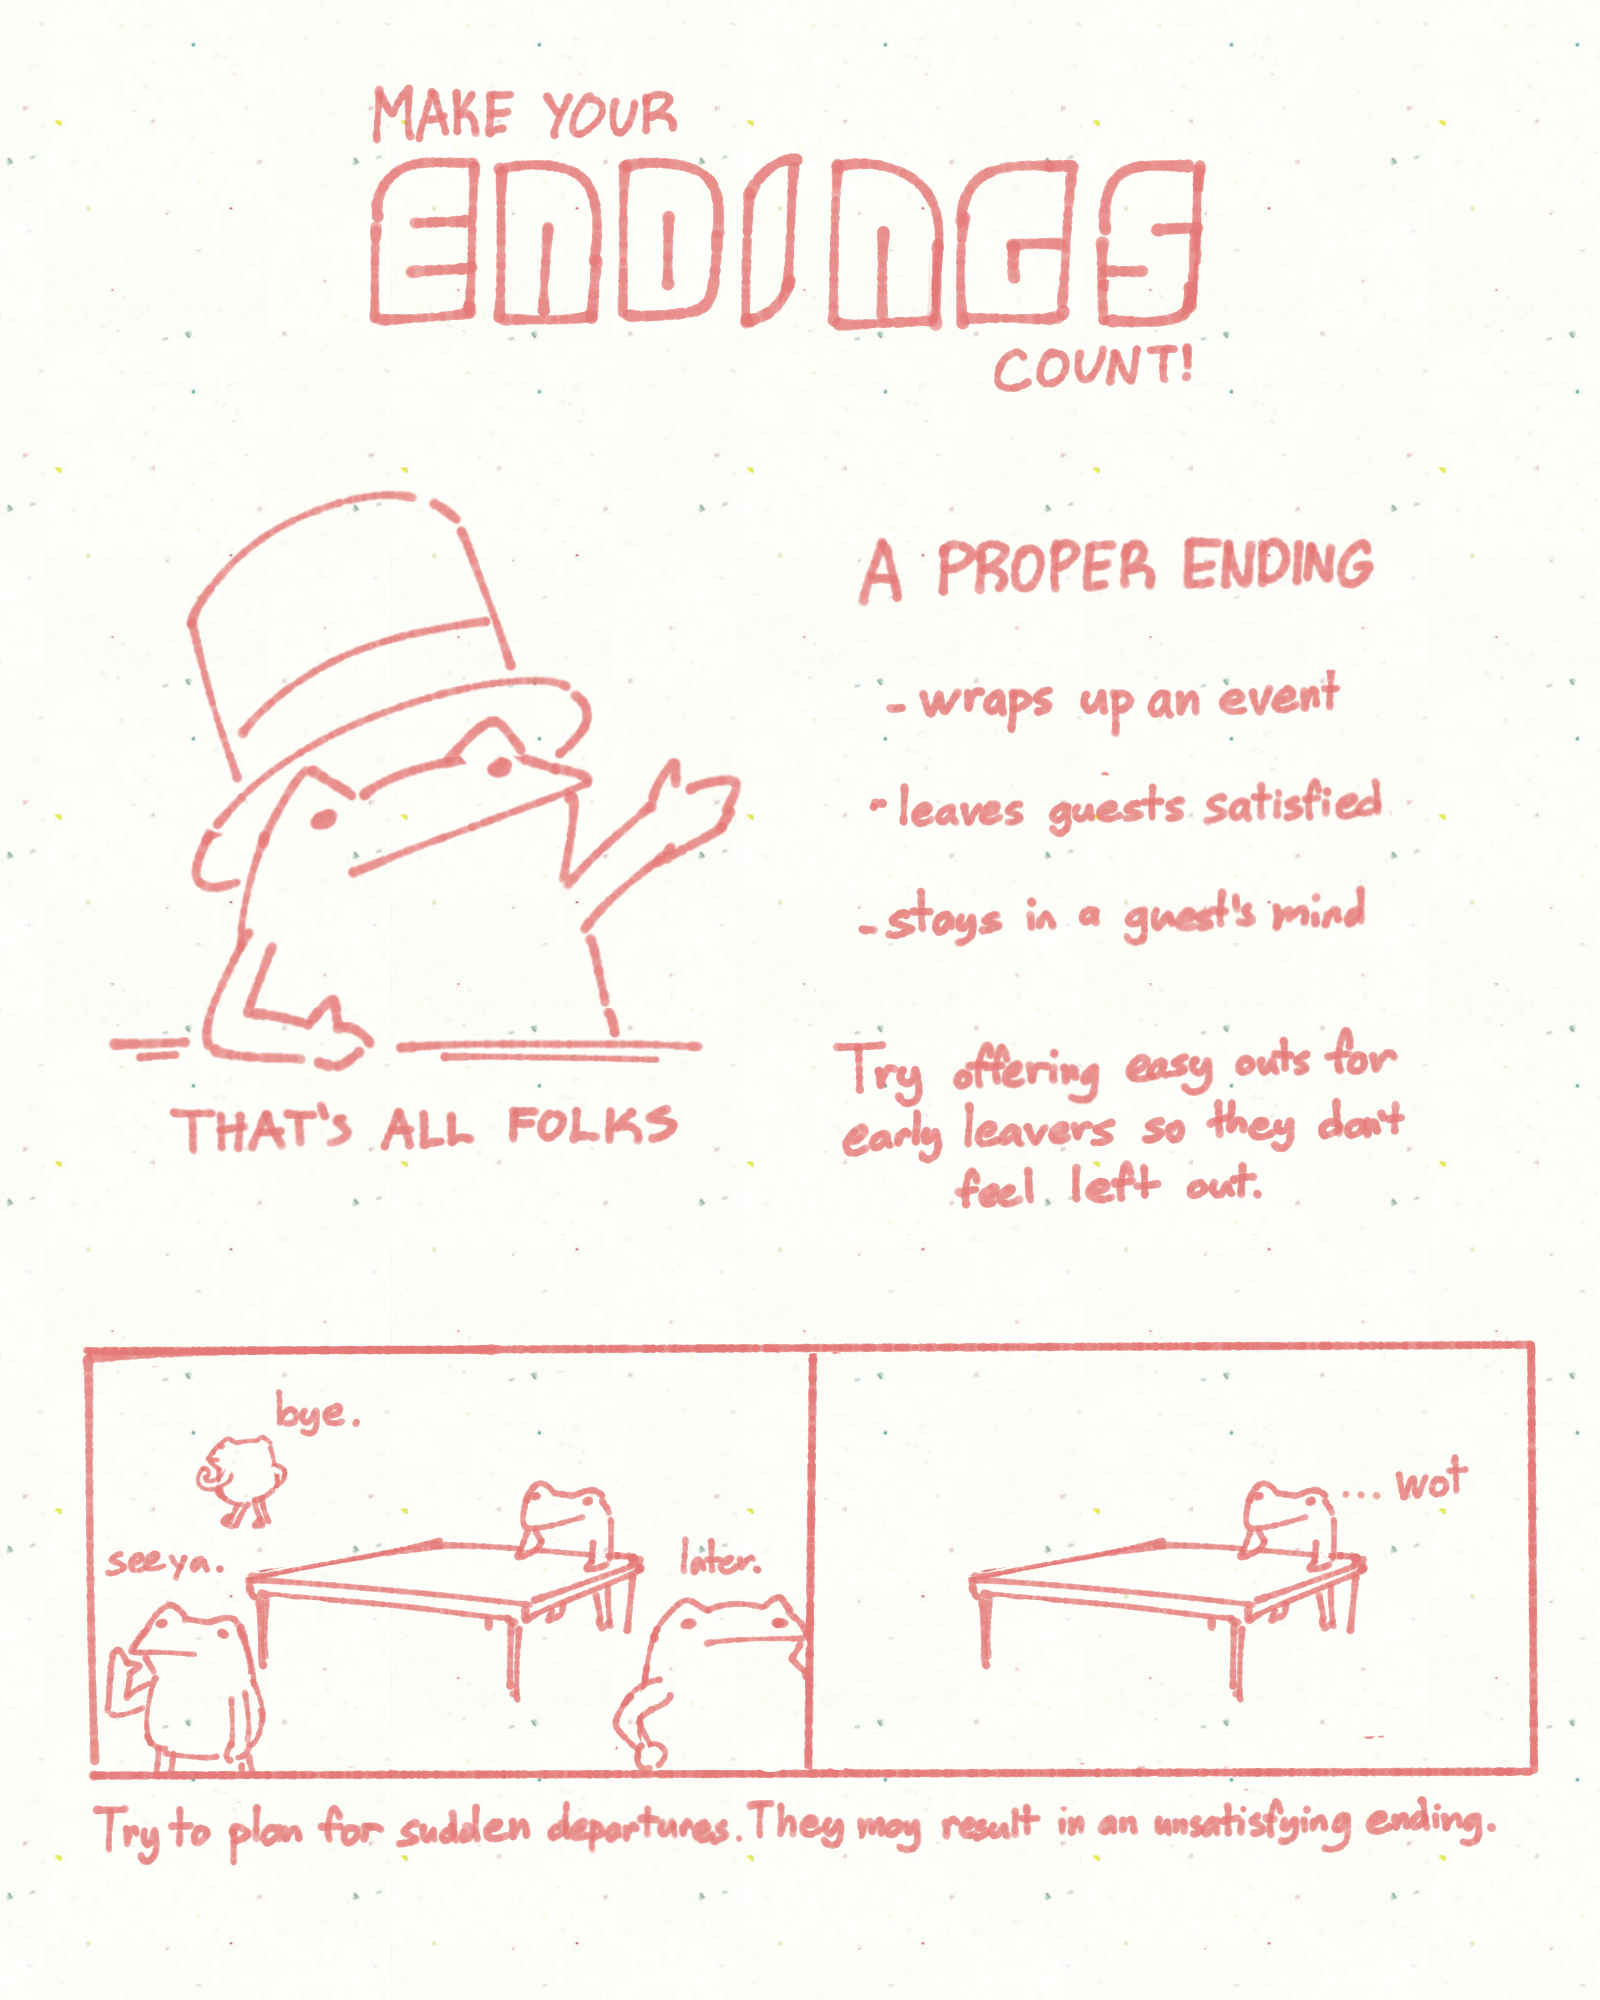 MAKE YOUR
ENDINGS
COUNT!
A PROPER ENDING
- wraps up an event
- leaves guests satisfied
- stays in a guest's mind
Try offering easy outs for
early leavers so they don't
feel left out.
THAT'S ALL FOLKS
bye.
see ya.
later.
... wot
Try to plan for sudden departures. They may result in an unsatisfying ending.